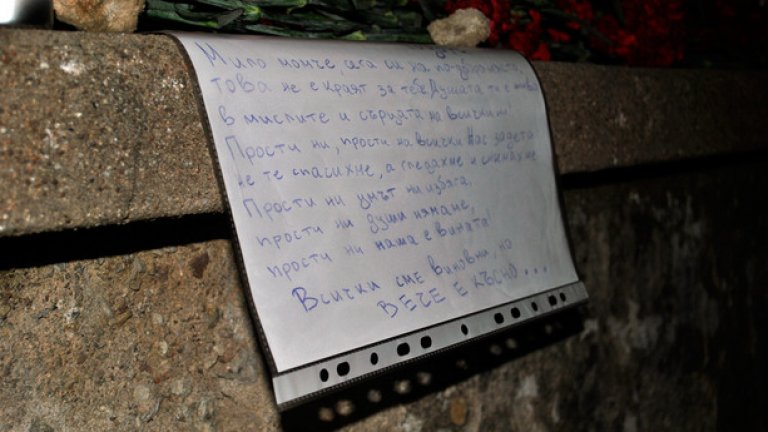 Мило момче, сега си на по-добро място,
това не е краят за теб! Душата ти е жива
в мислите и сърцата на всички ни!
Прости ни, прости на всички Нас задето
не те спасихме, а гледахме и снимахме
Прости ни умът ни избяга,
прости ни души нямаме,
прости ни наша е вината!
Всички сме виновни, но
ВЕЧЕ Е КЪСНО...